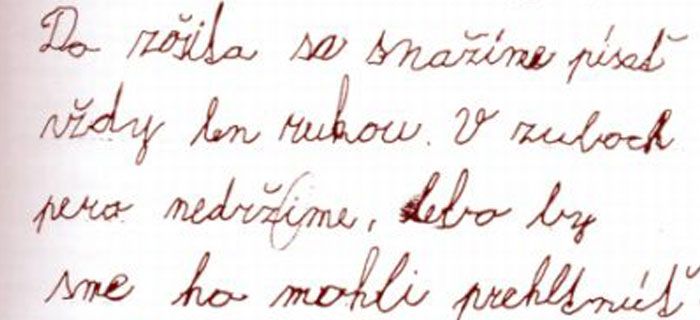 Do zošita sa snažíme písať
vždy len rukou. V zuboch
pero nedržíme, lebo by
sme ho mohli prehltnúť